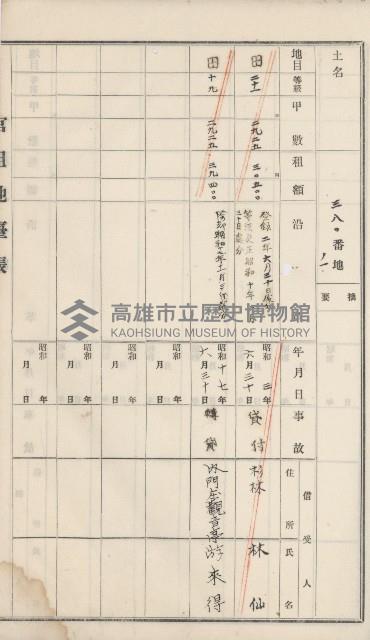 土名
三八〇番地ノ一
摘要
地目 等級 甲數 租額 沿
年月日 事故 住所 氏名
借受人
田 二十一 二九二五 三〇五〇〇
登錄二年六月三十日
等級更正昭和十年
三十日處分
昭和二年六月三十日 貸付 杉林 林仙
田 十九 二九二五 三九四〇〇
昭和十七年六月三十日 轉貸 內門 觀音亭 游來得
昭和 年 月 日
昭和 年 月 日
昭和 年 月 日
官租地臺帳
高雄市立歷史博物館
KAOHSIUNG MUSEUM OF HISTORY